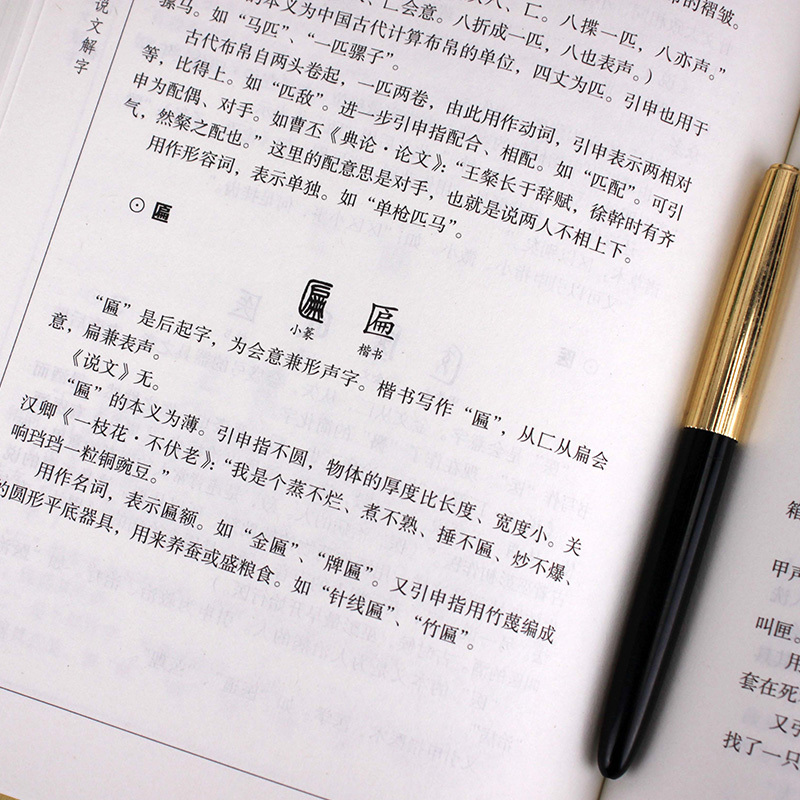 说文解字
的褶皱。
八、匚。八揲一匹，八亦声。”
匚会意。八折成一匹，八也表声。）
的本义为中国古代计算布帛的单位，四丈为匹。引申也用于
骡马。如“马匹”、“一匹骡子”。
古代布帛自两头卷起，一匹两卷，由此用作动词，引申表示两相对
等，比得上。如“匹敌”。进一步引申指配合、相配。如“匹配”。可引
申为配偶、对手。如曹丕《典论·论文》：“王粲长于辞赋，徐幹时有齐
气，然粲之配也。”这里的配意思是对手，也就是说两人不相上下。
用作形容词，表示单独。如“单枪匹马”。
⊙匾
匾 匾
小篆 楷书
“匾”是后起字，为会意兼形声字。楷书写作“匾”，从匚从扁会
意，扁兼表声。
《说文》无。
“匾”的本义为薄。引申指不圆，物体的厚度比长度、宽度小。关
汉卿《一枝花·不伏老》：“我是个蒸不烂、煮不熟、捶不匾、炒不爆、
响珰珰一粒铜豌豆。”
用作名词，表示匾额。如“金匾”、“牌匾”。又引申指用竹篾编成
的圆形平底器具，用来养蚕或盛粮食。如“针线匾”、“竹匾”。
箱
甲声
叫匣。
用
套在死
又引
找了一只